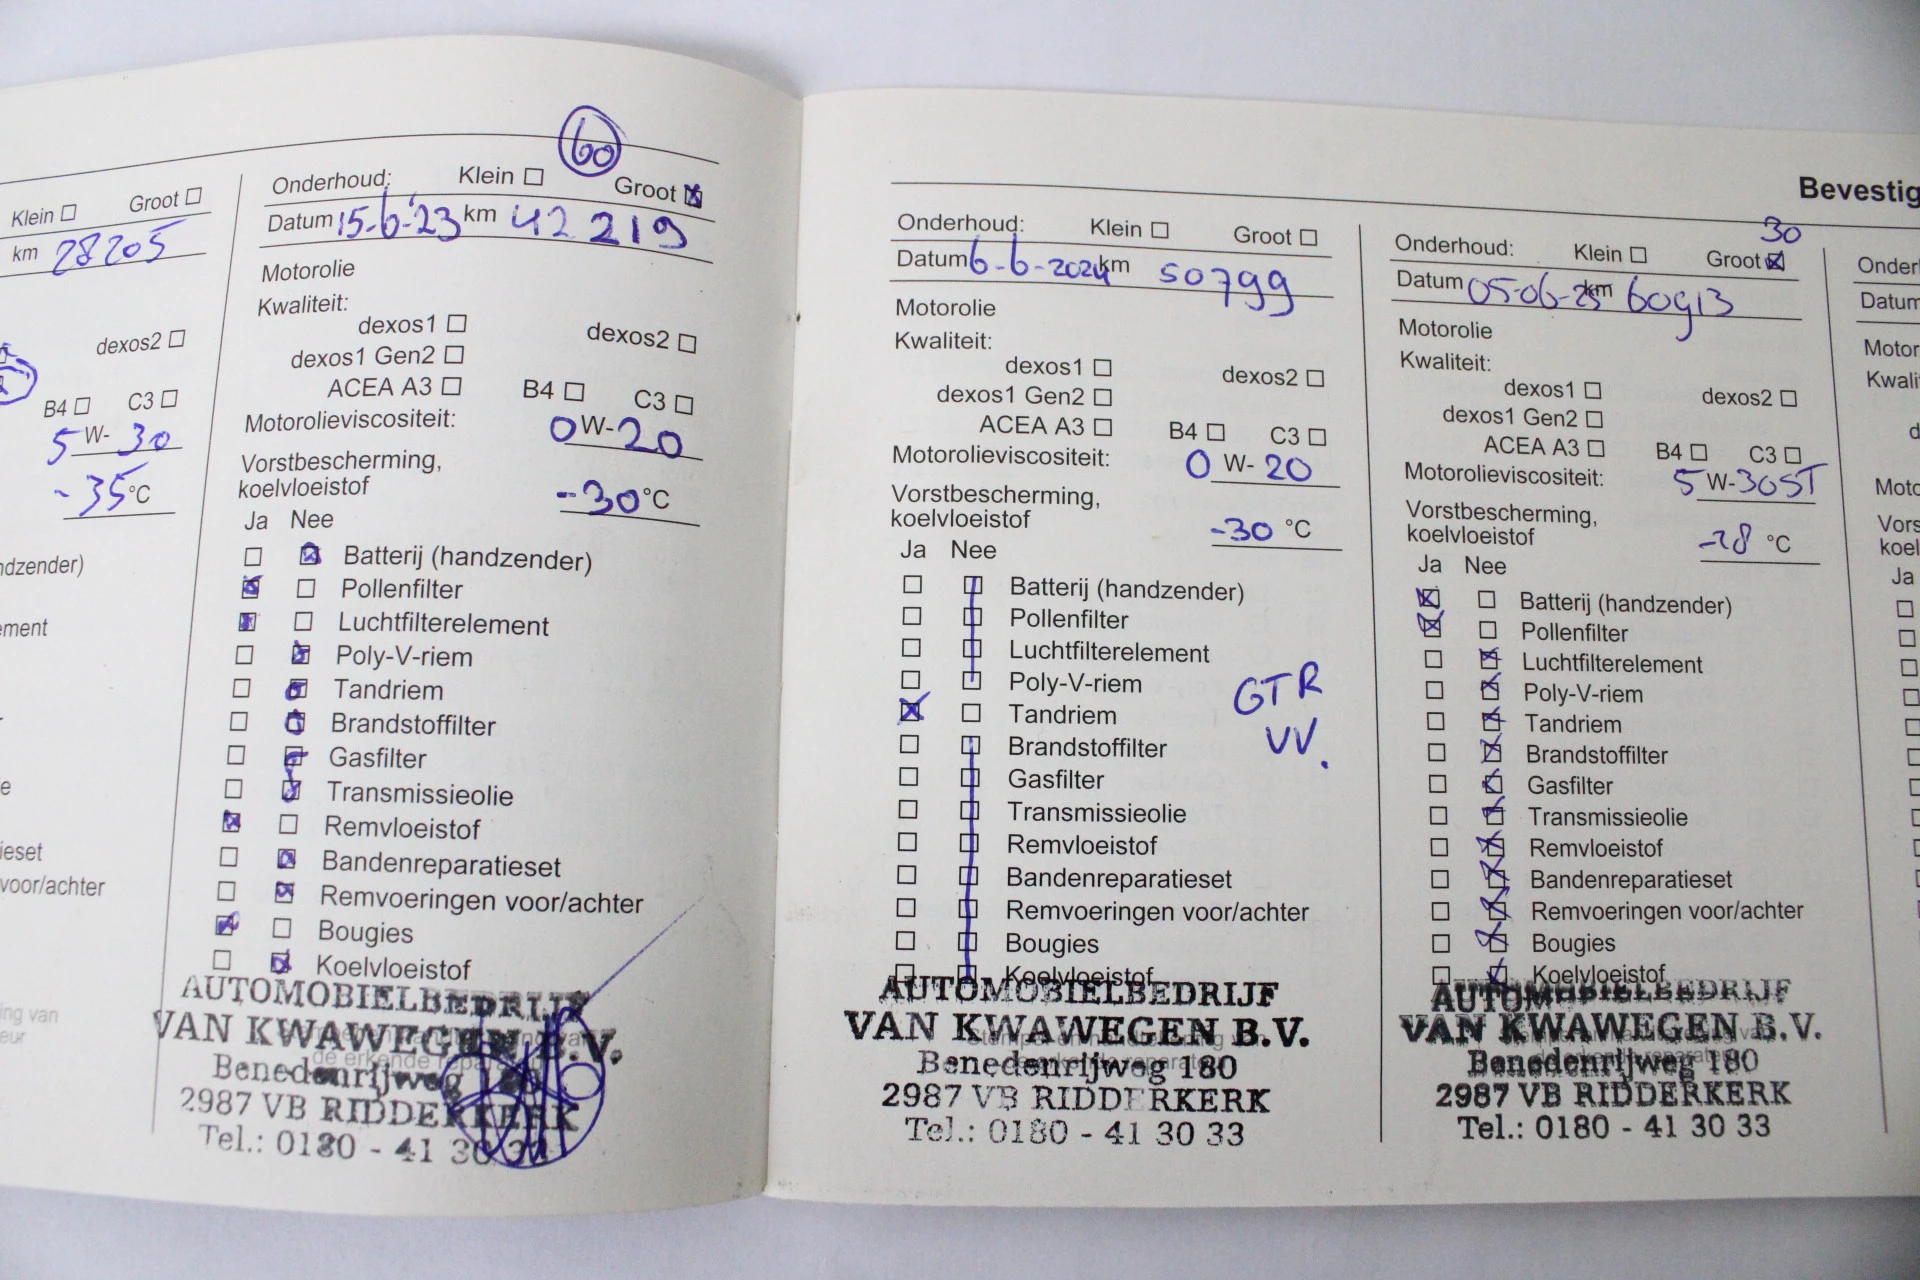 Klein ☐ Groot ☐
km 28205
dexos2 ☐
B4 ☐ C3 ☐
5 W- 30
-35 °C
ndzender)
ement
e
ieset
voor/achter
ing van
eur
60
Onderhoud: Klein ☐ Groot ☒
Datum 15-6-'23 km 42 219
Motorolie
Kwaliteit:
dexos1 ☐ dexos2 ☐
dexos1 Gen2 ☐
ACEA A3 ☐ B4 ☐ C3 ☐
Motorolieviscositeit: 0 W- 20
Vorstbescherming,
koelvloeistof -30 °C
Ja Nee
☐ ☒ Batterij (handzender)
☒ ☐ Pollenfilter
☒ ☐ Luchtfilterelement
☐ ☒ Poly-V-riem
☐ ☒ Tandriem
☐ ☒ Brandstoffilter
☐ ☒ Gasfilter
☐ ☒ Transmissieolie
☒ ☐ Remvloeistof
☐ ☒ Bandenreparatieset
☐ ☒ Remvoeringen voor/achter
☒ ☐ Bougies
☐ ☒ Koelvloeistof
AUTOMOBIELBEDRIJF
VAN KWAWEGEN B.V.
Benedenrijweg 180
2987 VB RIDDERKERK
Tel.: 0180 - 41 30 33
Bevestig
Onderhoud: Klein ☐ Groot ☐
Datum 6-6-2024 km 50799
Motorolie
Kwaliteit:
dexos1 ☐ dexos2 ☐
dexos1 Gen2 ☐
ACEA A3 ☐ B4 ☐ C3 ☐
Motorolieviscositeit: 0 W- 20
Vorstbescherming,
koelvloeistof -30 °C
Ja Nee
☐ ☒ Batterij (handzender)
☐ ☒ Pollenfilter
☐ ☒ Luchtfilterelement
☐ ☒ Poly-V-riem
GTR
☒ ☐ Tandriem
VV.
☐ ☒ Brandstoffilter
☐ ☒ Gasfilter
☐ ☒ Transmissieolie
☐ ☒ Remvloeistof
☐ ☒ Bandenreparatieset
☐ ☒ Remvoeringen voor/achter
☐ ☒ Bougies
☐ ☒ Koelvloeistof
AUTOMOBIELBEDRIJF
VAN KWAWEGEN B.V.
Benedenrijweg 180
2987 VB RIDDERKERK
Tel.: 0180 - 41 30 33
30
Onderhoud: Klein ☐ Groot ☒
Datum 05-06-25 km 60913
Motorolie
Kwaliteit:
dexos1 ☐ dexos2 ☐
dexos1 Gen2 ☐
ACEA A3 ☐ B4 ☐ C3 ☐
Motorolieviscositeit: 5 W-30ST
Vorstbescherming,
koelvloeistof -28 °C
Ja Nee
☒ ☐ Batterij (handzender)
☒ ☐ Pollenfilter
☐ ☒ Luchtfilterelement
☐ ☒ Poly-V-riem
☐ ☒ Tandriem
☐ ☒ Brandstoffilter
☐ ☒ Gasfilter
☐ ☒ Transmissieolie
☐ ☒ Remvloeistof
☐ ☒ Bandenreparatieset
☐ ☒ Remvoeringen voor/achter
☐ ☒ Bougies
☐ ☒ Koelvloeistof
AUTOMOBIELBEDRIJF
VAN KWAWEGEN B.V.
Benedenrijweg 180
2987 VB RIDDERKERK
Tel.: 0180 - 41 30 33
Onder
Datum
Motor
Kwali
d
Moto
Vors
koel
Ja